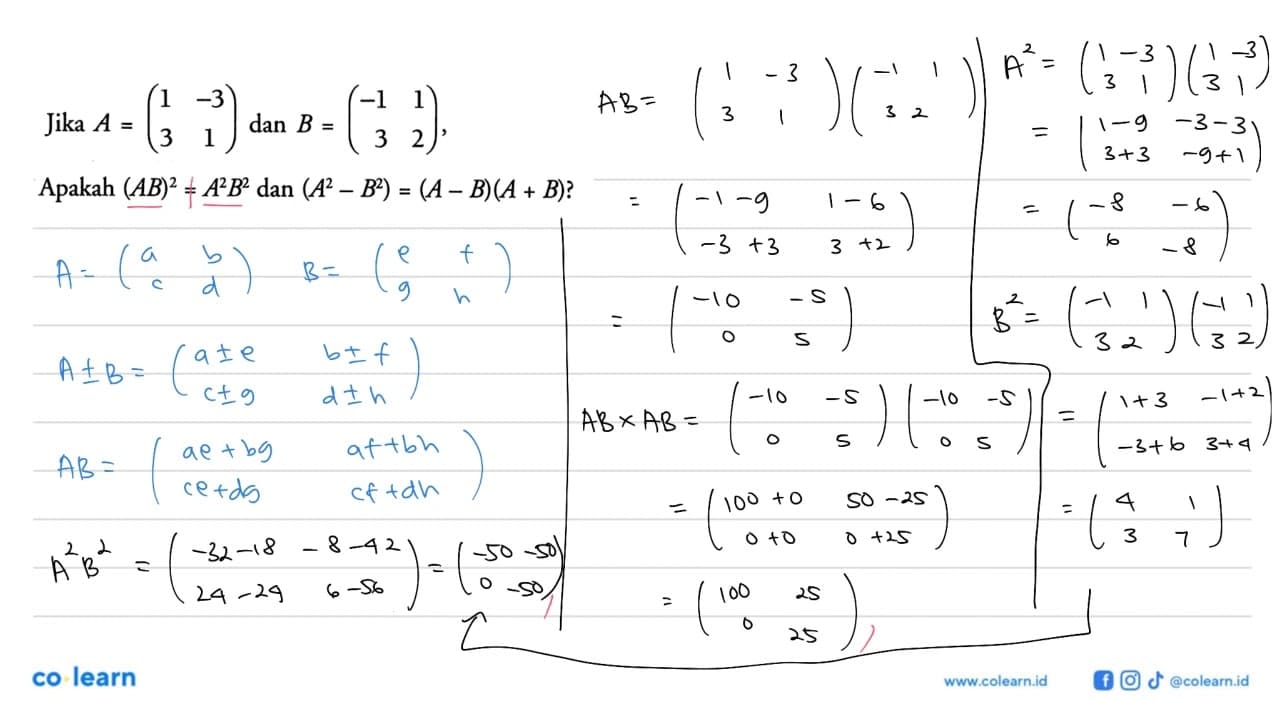 Jika A = (1 -3 3 1) dan B = (-1 1 3 2),
Apakah (AB)² = A²B² dan (A² – B²) = (A – B)(A + B)?
A = (a b
c d)
B = (e f
g h)
A ± B = (a ± e b ± f
c ± g d ± h)
AB = (ae + bg af + bh
ce + dg cf + dh)
A²B² = (-32-18 -8-42
24-29 6-56)
= (-50 -50
0 -50)
AB = (1 -3
3 1) (-1 1
3 2)
= (-1-9 1-6
-3+3 3+2)
= (-10 -5
0 5)
AB × AB = (-10 -5
0 5) (-10 -5
0 5)
= (100+0 50-25
0+0 0+25)
= (100 25
0 25)
A² = (1 -3
3 1) (1 -3
3 1)
= (1-9 -3-3
3+3 -9+1)
= (-8 -6
6 -8)
B² = (-1 1
3 2) (-1 1
3 2)
= (1+3 -1+2
-3+6 3+4)
= (4 1
3 7)
co·learn
www.colearn.id
@colearn.id